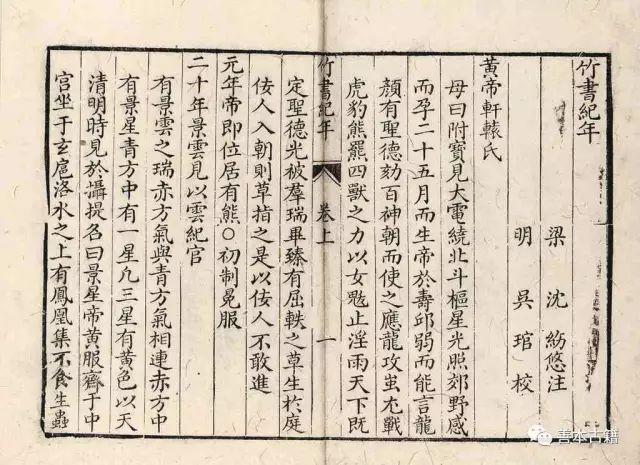 竹書紀年
梁 沈 紛悠注
明 吳 琯 校
黃帝軒轅氏
母曰附寶見大電繞北斗樞星光照郊野感
而孕二十五月而生帝於壽邱弱而能言龍
顏有聖德劾百神朝而使之應龍攻蚩尤戰
虎豹熊羆四獸之力以女魃止淫雨天下既
竹書紀年 卷上 一
定聖德光被羣瑞畢臻有屈軼之草生於庭
佞人入朝則草指之是以佞人不敢進
元年帝即位居有熊○初制冕服
二十年景雲見以雲紀官
有景雲之瑞赤方氣與青方氣相連赤方中
有景星青方中有一星凡三星有黃色以天
清明時見於攝提名曰景星帝黃服齊于中
宮坐于玄扈洛水之上有鳳凰集不食生蟲
善本古籍